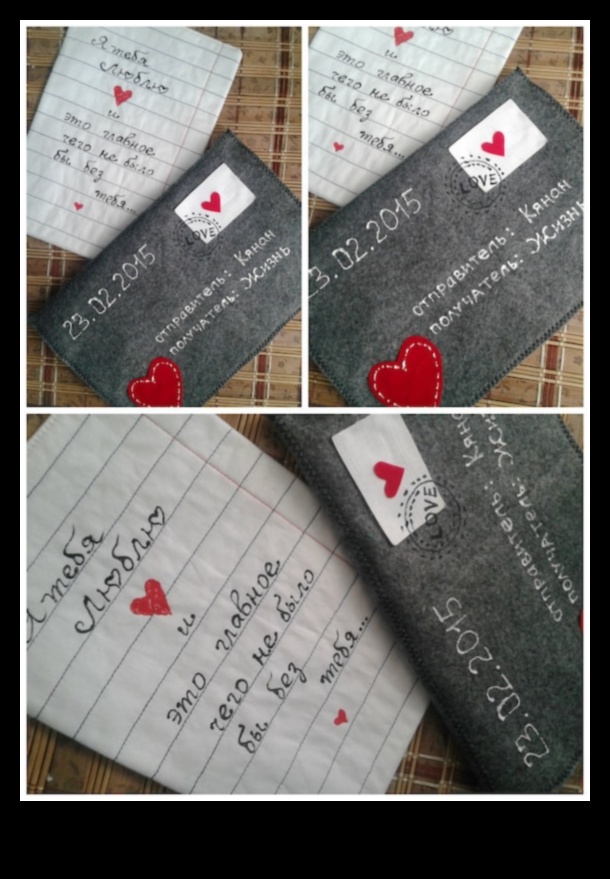 Я тебя
Люблю
и
это главное
чего не было
бы без
тебя...
LOVE
23.02.2015
отправитель: Кянан
получатель: Жизнь
и
это главное
чего не было
бы без
тебя...
LOVE
23.02.2015
отправитель: Кянан
получатель: Жизнь
Я тебя
Люблю
и
это главное
чего не было
бы без
тебя...
LOVE
23.02.2015
отправитель:
получатель: